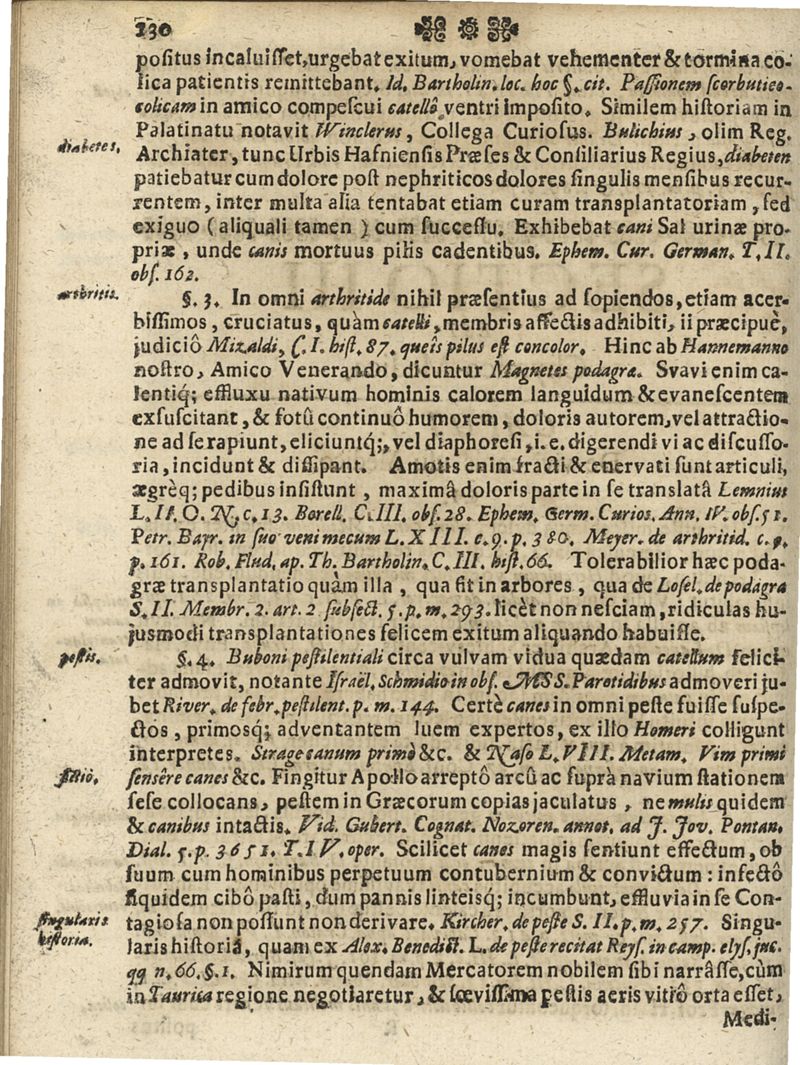 230
positus incaluisset, urgebat exitum, vomebat vehementer & tormina co-
lica patientis remittebant. Id. Bartholin. loc. hoc §. cit. Passionem scorbutico-
colicam in amico compescui catellô ventri imposito. Similem historiam in
Palatinatu notavit Winclerus, Collega Curiosus. Bulichius, olim Reg.
diabetes.
Archiater, tunc Urbis Hafniensis Præses & Consiliarius Regius, diabeten
patiebatur cum dolore post nephriticos dolores singulis mensibus recur-
rentem, inter multa alia tentabat etiam curam transplantatoriam, sed
exiguo (aliquali tamen) cum successu. Exhibebat cani Sal urinæ pro-
priæ, unde canis mortuus pilis cadentibus. Ephem. Cur. German. T. II.
obs. 162.
arthritis.
§. 3. In omni arthritide nihil præsentius ad sopiendos, etiam acer-
bissimos, cruciatus, quàm catelli, membris affectis adhibiti, ii præcipuè,
judiciô Mizaldi, C. I. hist. 87. queîs pilus est concolor. Hinc ab Hannemanno
nostro, Amico Venerando, dicuntur Magnetes podagræ. Svavi enim ca-
lentiq; effluxu nativum hominis calorem languidum & evanescentem
exsuscitant, & fotû continuô humorem, doloris autorem, vel attractio-
ne ad se rapiunt, eliciuntq;, vel diaphoresi, i. e. digerendi vi ac discusso-
ria, incidunt & dissipant. Amotis enim fracti & enervati sunt articuli,
ægrèq; pedibus insistunt, maximâ doloris parte in se translatâ Lemnius
L. II. O. N. c. 13. Borell. C. III. obs. 28. Ephem. Germ. Curios. Ann. IV. obs. 51.
Petr. Bayr. in suo veni mecum L. XIII. c. 9. p. 380. Meyer. de arthritid. c. 9.
p. 161. Rob. Flud. ap. Th. Bartholin. C. III. hist. 66. Tolerabilior hæc poda-
græ transplantatio quàm illa, qua fit in arbores, qua de Losel. de podagra
S. II. Membr. 2. art. 2 subsect. 5. p. m. 293. licèt non nesciam, ridiculas hu-
jusmodi transplantationes felicem exitum aliquando habuisse.
pestis.
§. 4. Buboni pestilentiali circa vulvam vidua quædam catellum felici-
ter admovit, notante Israël. Schmidio in obs. MSS. Parotidibus admoveri ju-
bet River. de febr. pestilent. p. m. 144. Certè canes in omni peste fuisse suspe-
ctos, primosq; adventantem luem expertos, ex illo Homeri colligunt
interpretes. Strage canum primò &c. & Naso L. VIII. Metam. Vim primi
fictiô.
sensêre canes &c. Fingitur Apollo arreptô arcû ac suprà navium stationem
sese collocans, pestem in Græcorum copias jaculatus, ne mulis quidem
& canibus intactis. Vid. Gubert. Cognat. Nozoren. annot. ad J. Jov. Pontan.
Dial. 5. p. 3651. T. IV. oper. Scilicet canes magis sentiunt effectum, ob
suum cum hominibus perpetuum contubernium & convictum: infectô
siquidem cibô pasti, dum pannis linteisq; incumbunt, effluvia in se Con-
singularis
historia.
tagiosa non possunt non derivare. Kircher. de peste S. II. p. m. 257. Singu-
laris historia, quam ex Alex. Benedict. L. de peste recitat Reys. in camp. elys. juc.
qq n. 66. §. 1. Nimirum quendam Mercatorem nobilem sibi narrâsse, cùm
in Taurica regione negotiaretur, & sœvissima pestis aeris vitiô orta esset,
Medi-